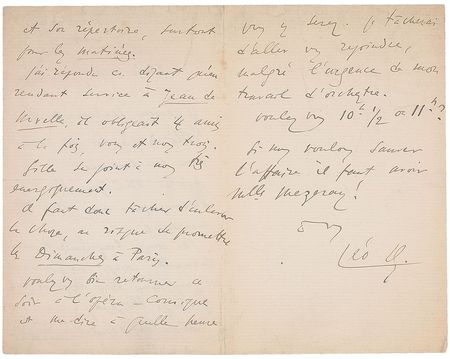 et son répertoire, surtout
pour les matinées.
J'ai répondu ce départ qu'en
rendant service à Jean de
Nivelle, il obligeait 4 amis
à la fois, vous et nous trois.
Gille le joint à nous très
énergiquement.
Il faut donc tâcher d'enlever
la chose, au risque de promettre
le Dimanche à Paris.
Voulez-vous bien retourner ce
soir à l'Opéra-Comique
et me dire à quelle heure
vous y serez. Je tâcherai
d'aller vous rejoindre,
malgré l'urgence de mon
travail d'orchestre.
Voulez-vous 10h 1/2 ou 11h ?
Si nous voulons sauver
l'affaire il faut avoir
Mlle Mézeray !
à vs
Léo D.